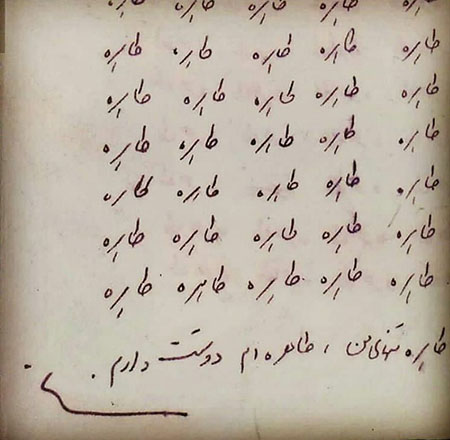 طاهره طاهره طاهره طاهره طاهره
طاهره طاهره طاهره طاهره طاهره
طاهره طاهره طاهره طاهره طاهره
طاهره طاهره طاهره طاهره طاهره
طاهره طاهره طاهره طاهره طاهره
طاهره طاهره طاهره طاهره طاهره
طاهره طاهره طاهره طاهره طاهره
طاهره تنهای من ، طاهره ام دوستت دارم .